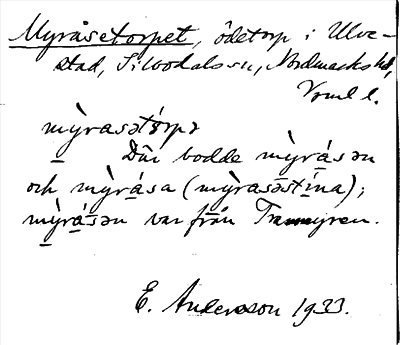 Myråsetorpet, ödetorp i Ulve-
stad, Silbodals sn, Nordmarks hd,
Vrml l.
mỳrasətórpə
Där bodde mỳrásən
och mỳrása (mỳrasəstína);
mỳrásən var från Tranmyren.
E. Andersson 1933.